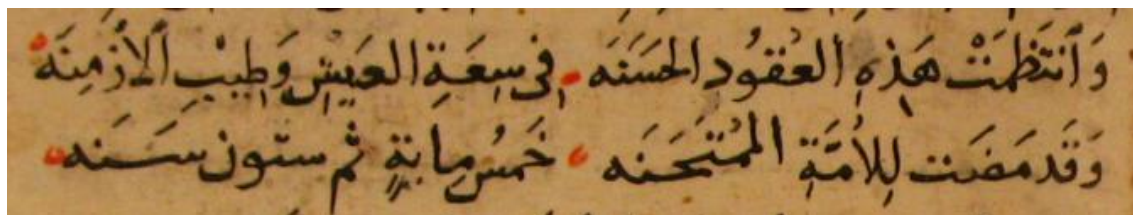 وَٱنتَظَمَتْ هَذِهِ العُقُود الحَسَنَه فِي سِعَةِ العَيْشِ وَطِيبِ الأَزْمِنَه
وَقَد مَضَت لِلأُمَّةِ المُمْتَحَنَه خَمْسُ مِايةٍ ثم ستون سَنَه